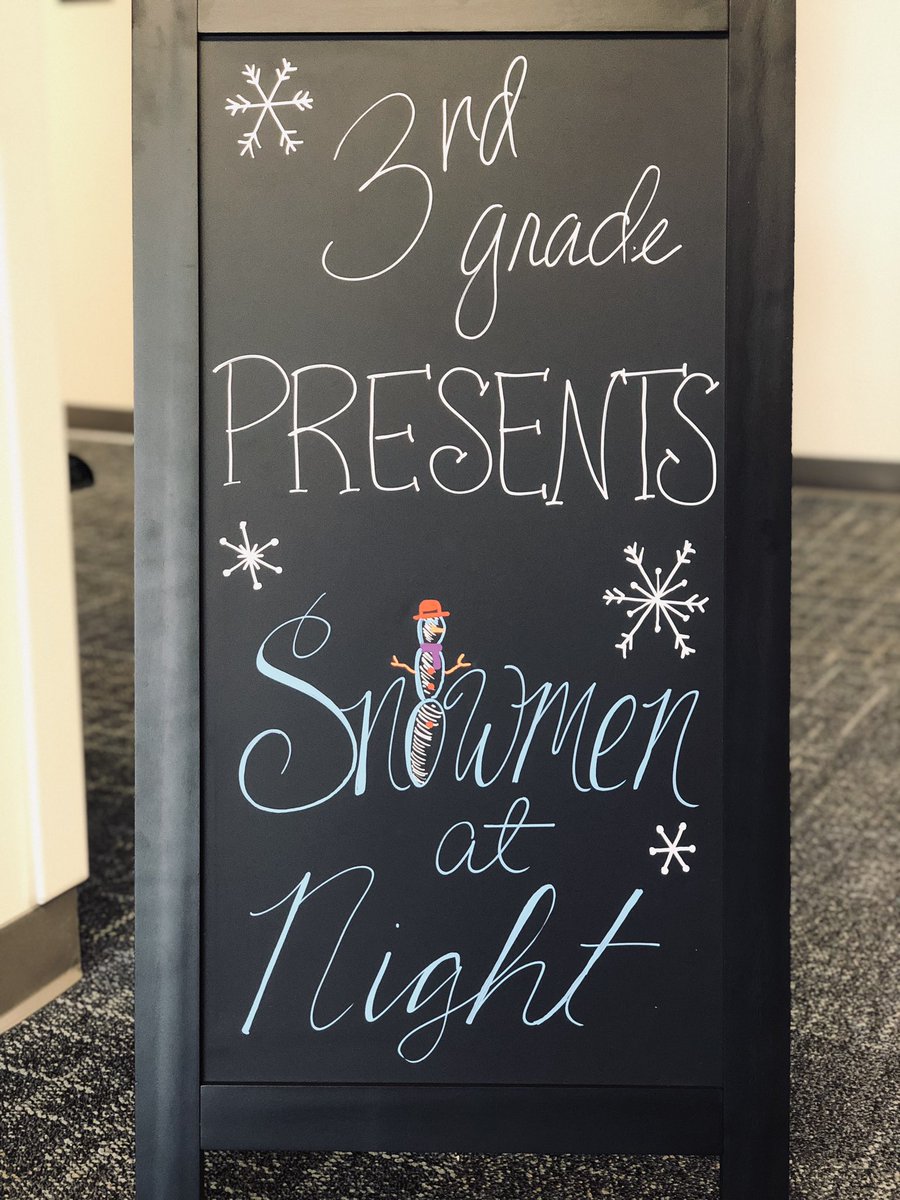 3rd
grade
PRESENTS
Snowmen
at
Night